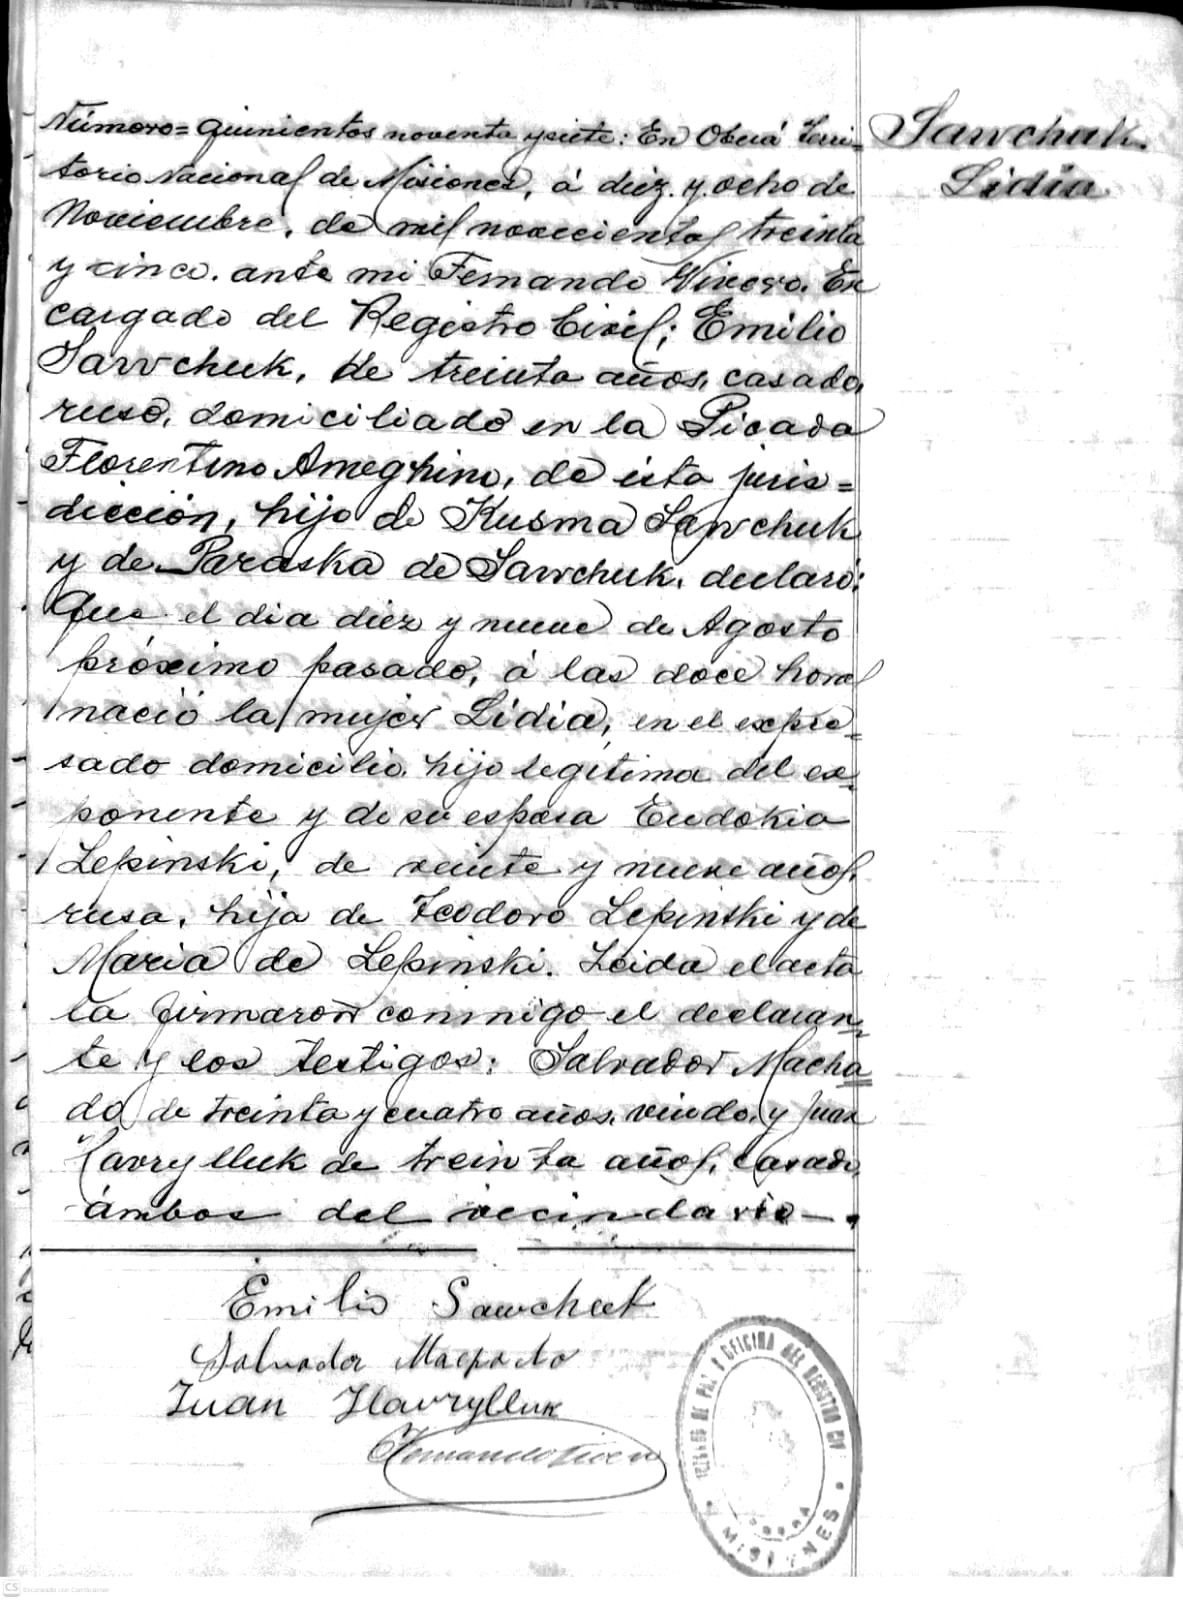 Número = quinientos noventa y siete: En Oberá Terri-
torio Nacional de Misiones, á diez y ocho de
Noviembre, de mil novecientos treinta
y cinco. ante mi Fernando Encargado
cargado del Registro Civil; Emilio
Sawchuk, de treinta años, casado,
ruso, domiciliado en la Picada
Florentino Ameghino, de ésta juris=
dicción, hijo de Kusma Sawchuk
y de Paraska de Sawchuk, declaró:
Que el dia diez y nueve de Agosto
próximo pasado, á las doce horas
nació la mujer Lidia, en el expre=
sado domicilio. hijo legítima del ex-
ponente y de su esposa Eudokia
Lepinski, de veinte y nueve años,
rusa, hija de Teodoro Lepinski y de
Maria de Lepinski. Leida el acta
la firmaron conmigo el declaran=
te y los testigos: Salvador Macha=
do de treinta y cuatro años, viudo, y Juan
Havrylluk de treinta años, casado,
ámbos del vecindario—.
Sawchuk.
Lidia
Emilio Sawchuk
Salvador Machado
Juan Havrylluk
JUZGADO DE PAZ Y OFICINA DEL REGISTRO CIV
MISIONES
CS Escaneado con CamScanner